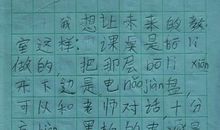 我想让未来的教
室这样：课桌是bō lí
做的，把那层bō lí xiān
开下边是电nǎo jiàn盘，
可以和老师对话十分